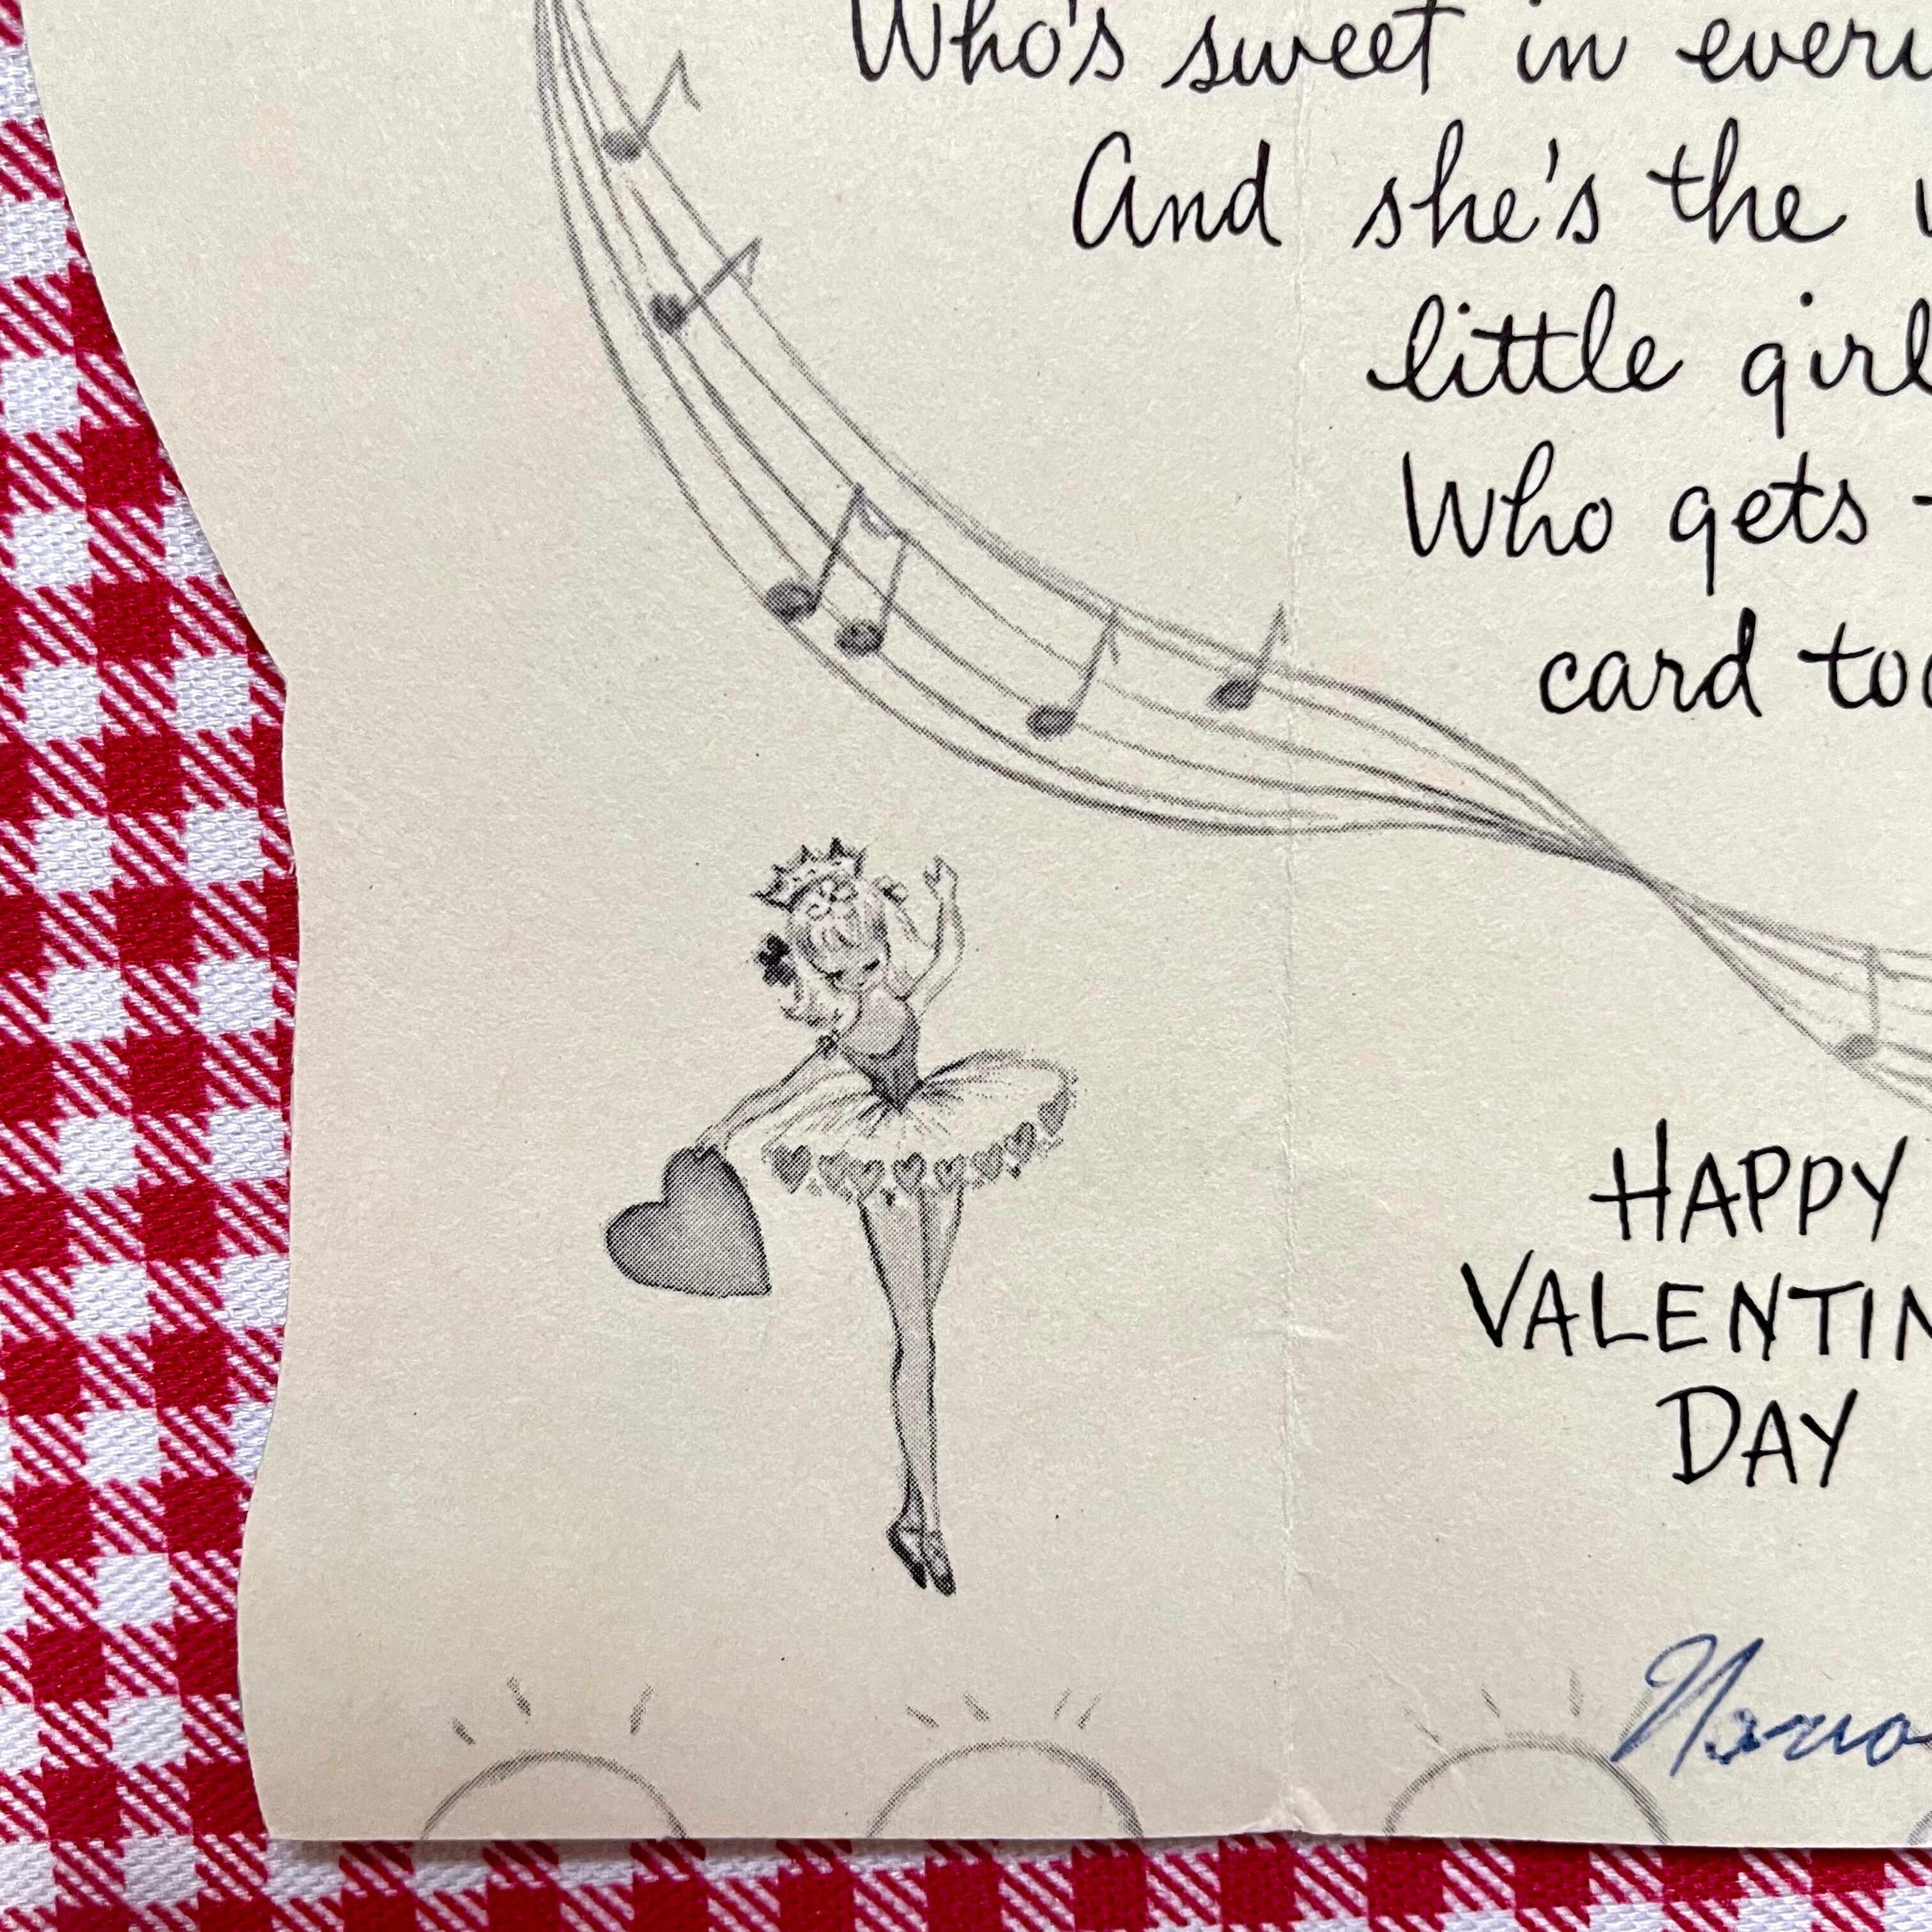 Who's sweet in every
And she's the
little girl
Who gets
card
HAPPY
VALENTIN
DAY